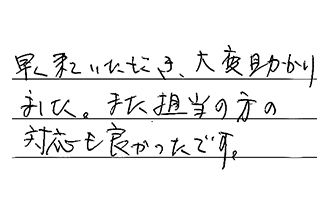 早く来ていただき、大変助かり
ました。また担当の方の
対応も良かったです。